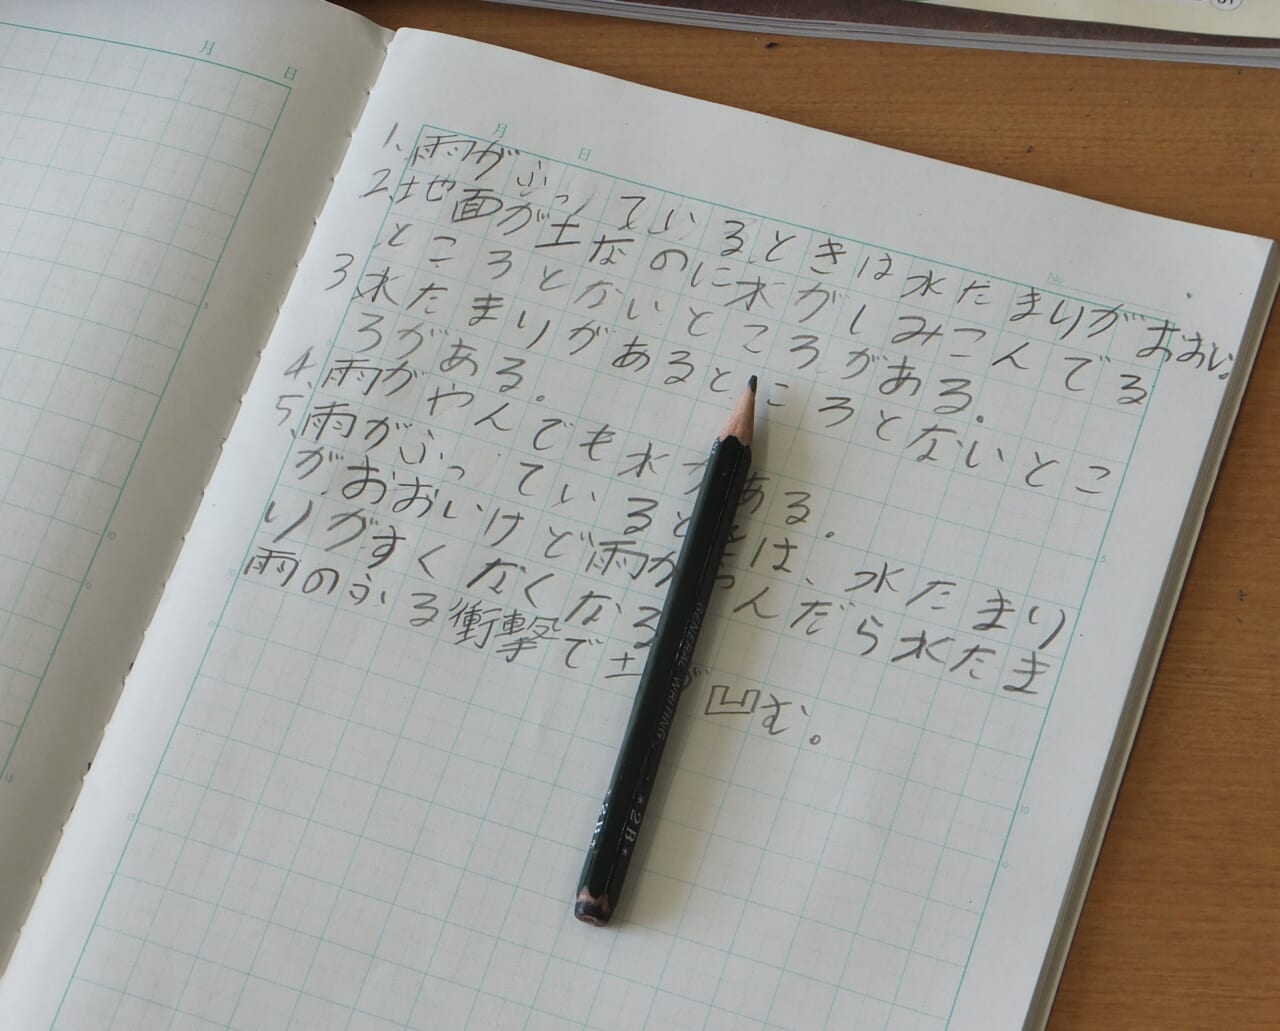 月 日
月 日
No.
1、雨がふっているときは水たまりがおおい。
2、地面が土なのに水がしみこんでる
ところとないところがある。
3 水たまりがあるところとないとこ
ろがある。
4、雨がやんでも水がある。
5、雨がふっているときは、水たまり
がおおいけど雨がやんだら水たま
りがすくなくなる
雨のふる衝撃で土が凹む。
GENERAL WRITING
*2B*